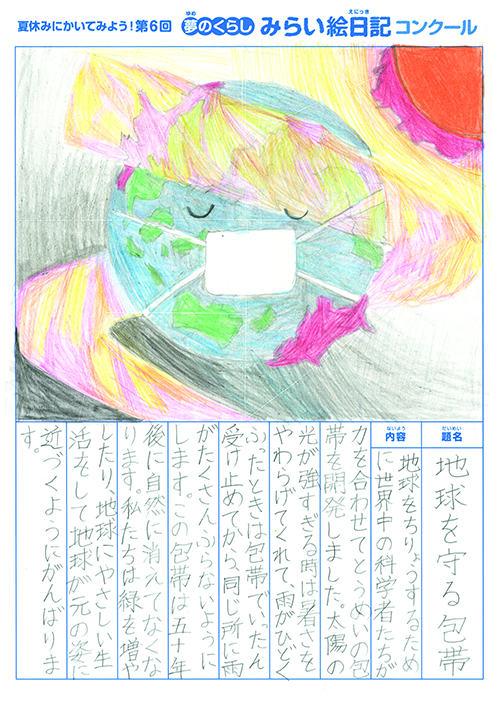 夏休みにかいてみよう!第6回 夢のくらし みらい絵日記 コンクール
ゆめ
えにっき
だいめい
題名
地球を守る包帯
ないよう
内容
地球をちりょうするため
に世界中の科学者たちが
力を合わせてとうめいの包
帯を開発しました。太陽の
光が強すぎる時は暑さを
やわらげてくれて、雨がひどく
ふったときは包帯でいったん
受け止めてから、同じ所に雨
がたくさんふらないように
します。この包帯は五十年
後に自然に消えてなくな
ります。私たちは緑を増や
したり、地球にやさしい生
活をして地球が元の姿に
近づくようにがんばりま
す。